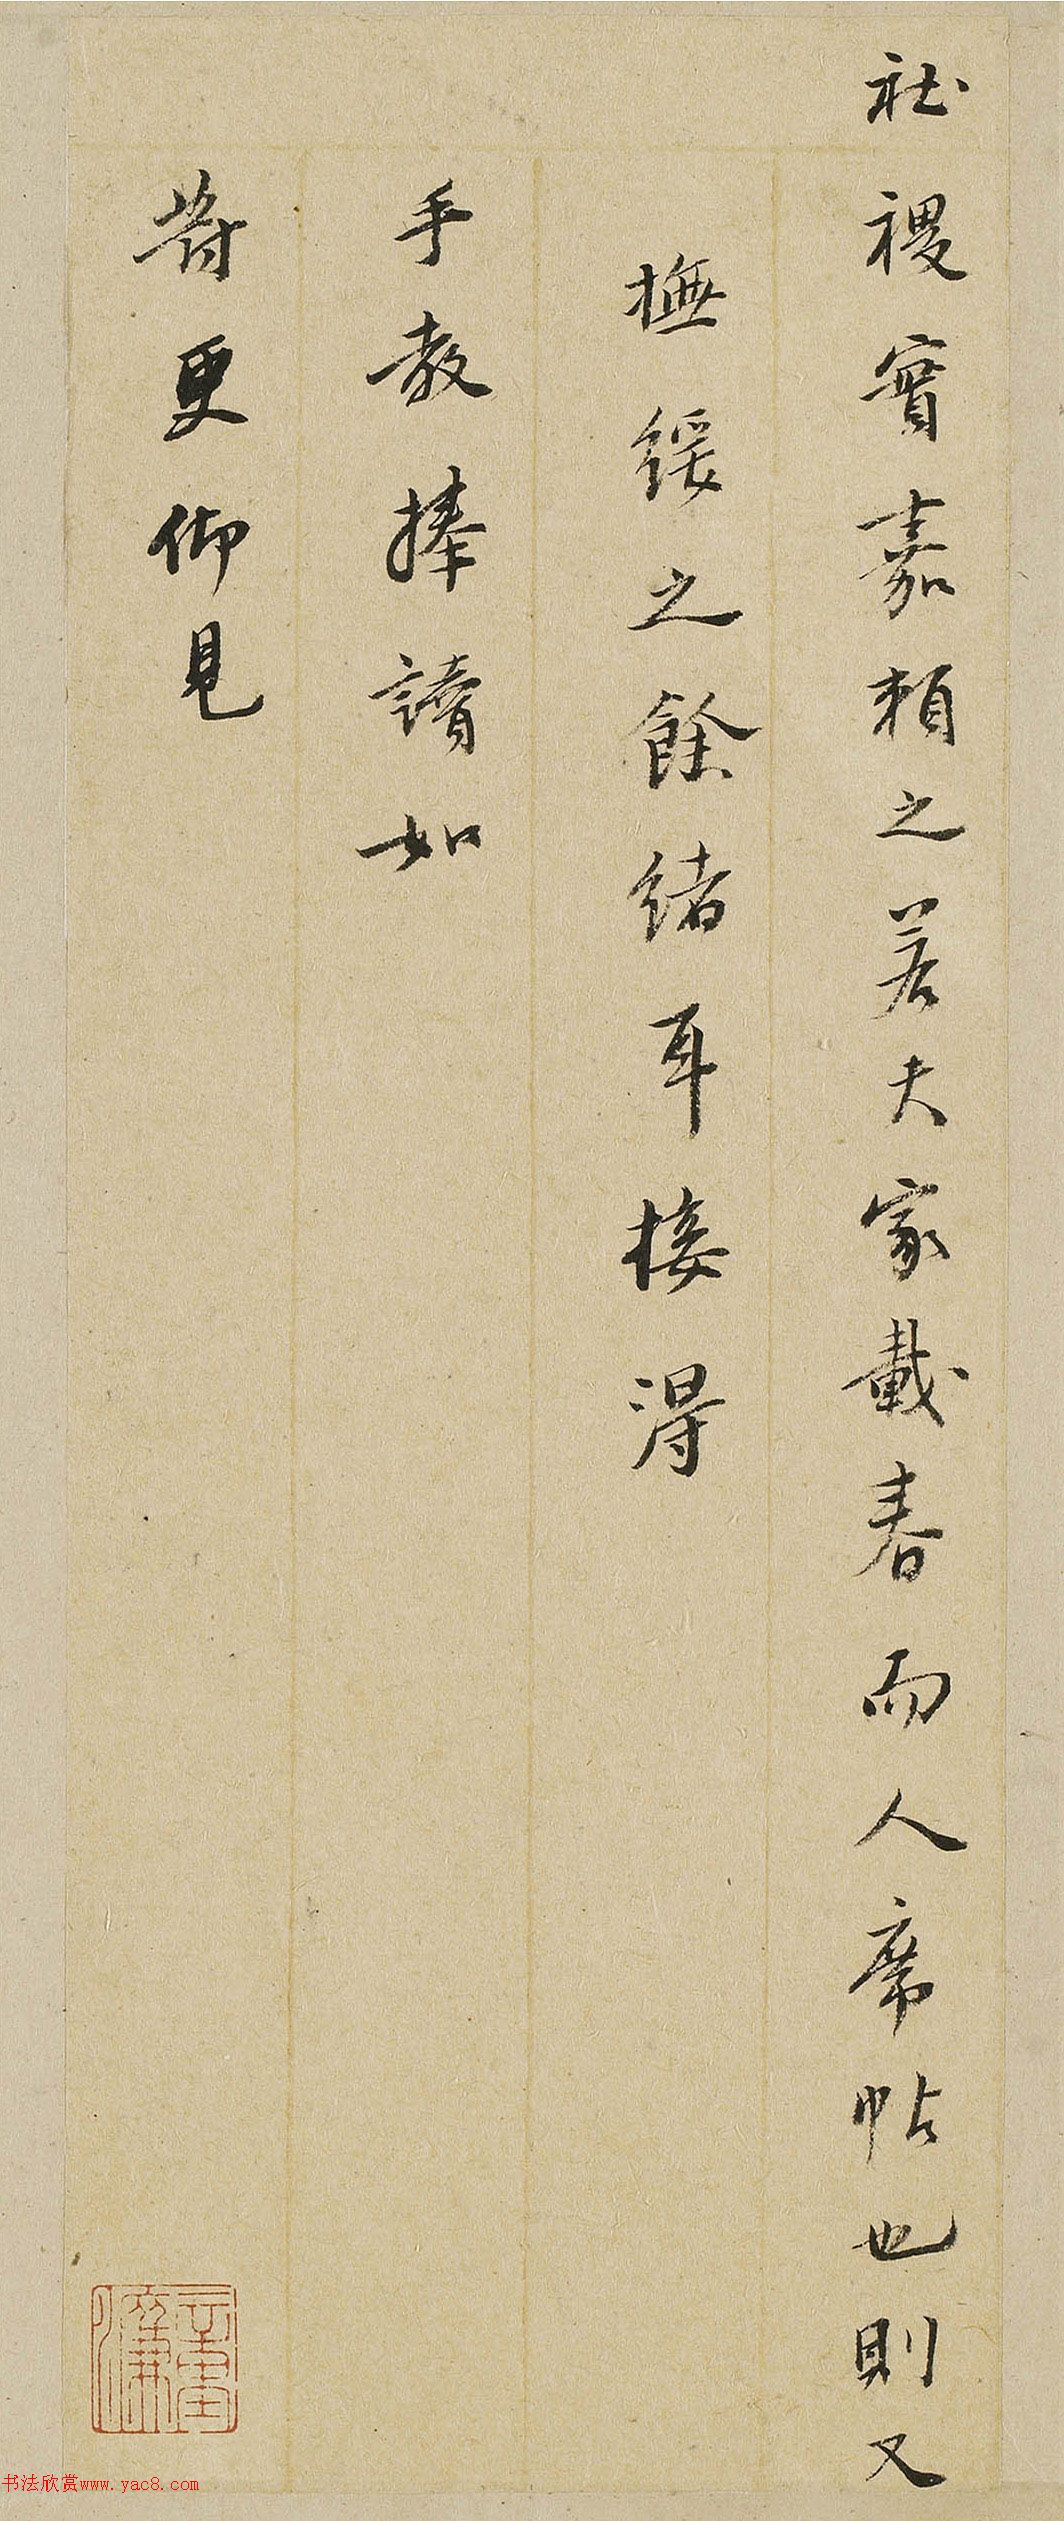 社稷實嘉賴之若夫家載春而人席帖也則又
撫綏之餘緒耳接得
手教捧讀如
對更仰見
书法欣赏www.yac8.com